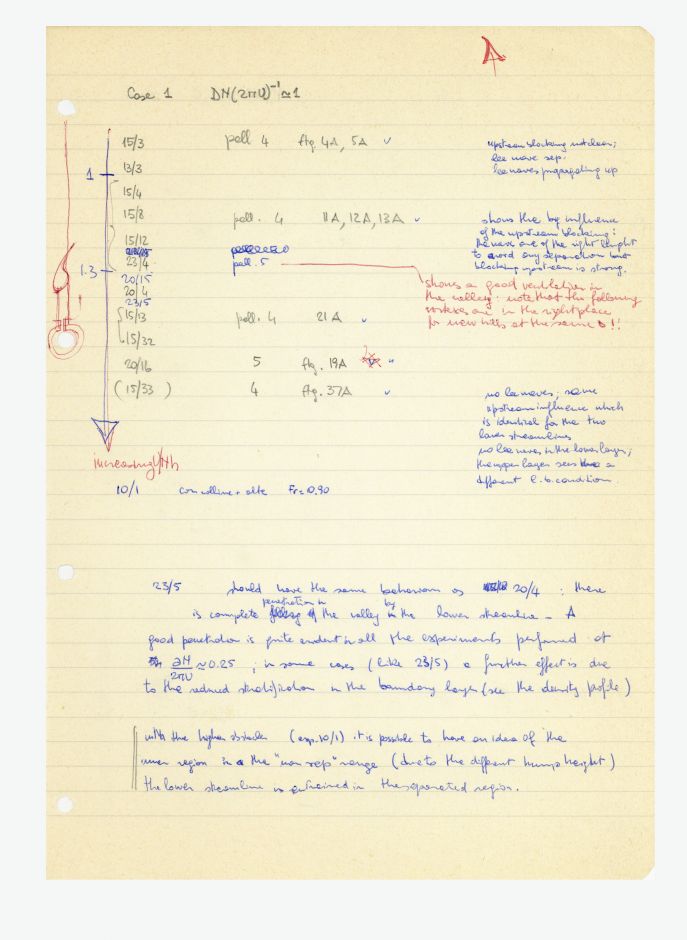 A
Case 1 DN(2πU)⁻¹ ≃ 1
15/3 pell 4 ftg. 4A, 5A ✓
upstream blocking not clear;
lee wave sep.
lee waves propagating up
1
13/3
15/4
15/8 pell. 4 11A, 12A, 13A ✓
shows the big influence
of the upstream blocking:
the wave are of the right lenght
to avoid any separation but
blocking upstream is strong.
15/12
23/4 pell. 5
1.3
shows a good ventilation in
the valley: note that the following
vortexes are in the right place
for new hills at the same b!!
20/15
20/4
23/5
15/13 pell. 4 21A ✓
15/32
20/16 5 ftg. 19A
(15/33) 4 ftg. 37A ✓
no lee waves; some
upstream influence which
is identical for the two
lower streamlines
no lee waves in the lower layer;
the upper layer sees a
different l.b. condition.
increasing
10/1 con colline + alte Fr = 0.90
23/5 should have the same behaviour as 20/4 : there
is complete penetration in the valley by the lower streamline - A
good penetration is quite evident in all the experiments performed at
∂N/2πU ≃ 0.25 ; in some cases (like 23/5) a further effect is due
to the reduced stratification in the boundary layer (see the density profile)
with the higher obstacles (exp. 10/1) it is possible to have an idea of the
region in the "non sep" range (due to the different hump height)
the lower streamline is entrained in the separated region.